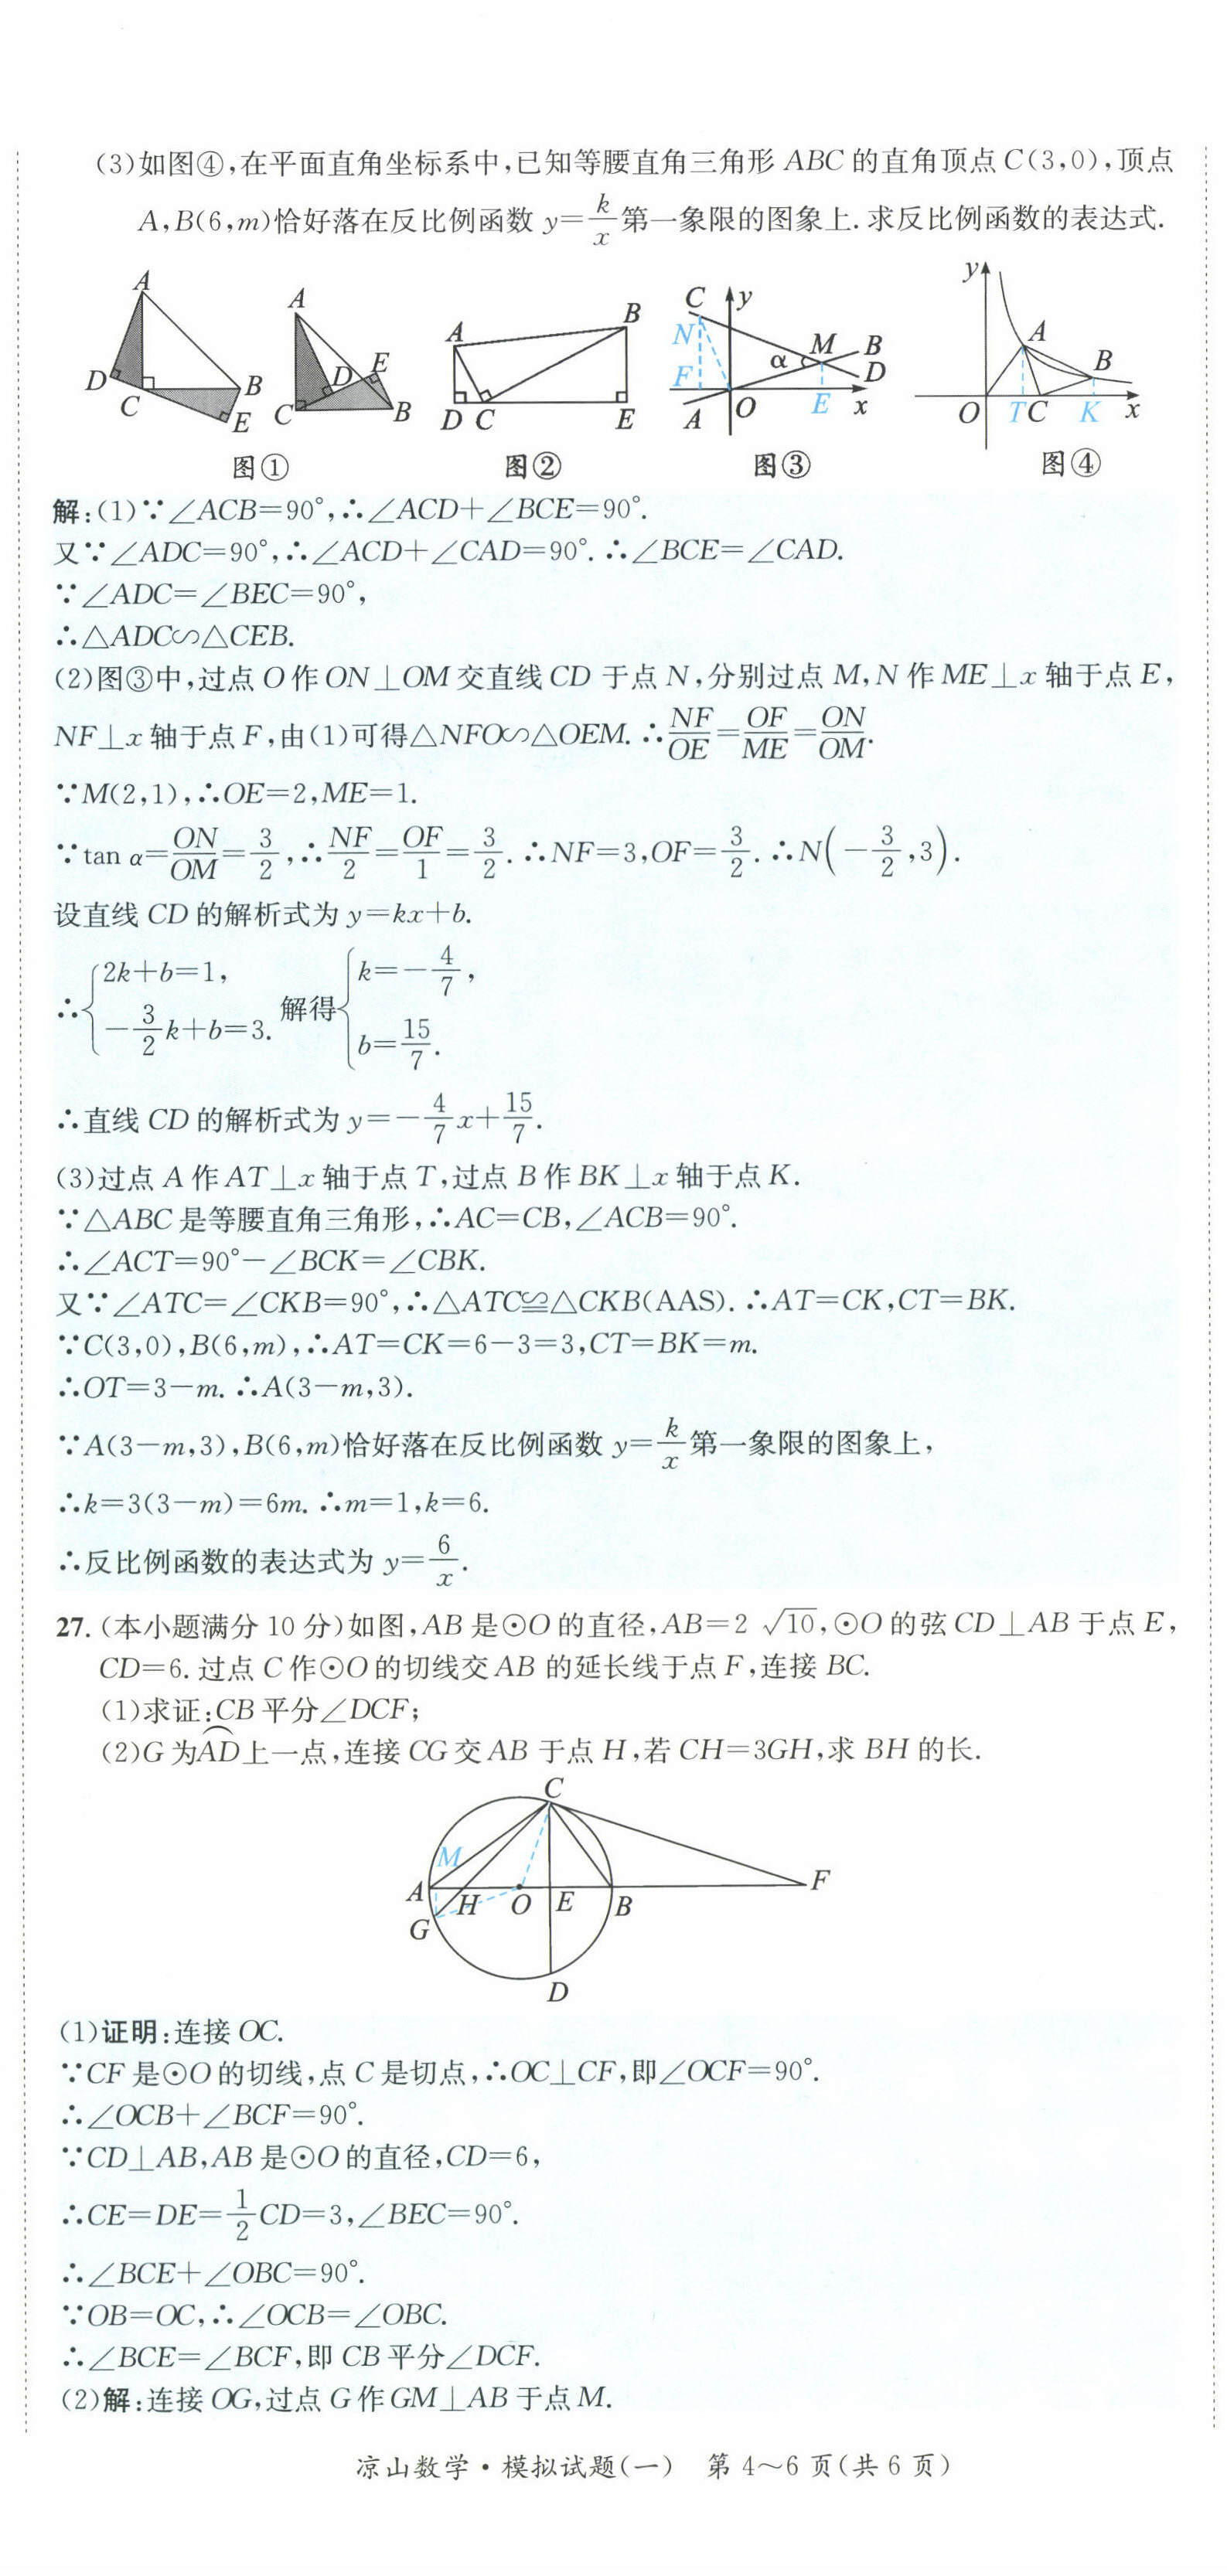 (3)如图④,在平面直角坐标系中,已知等腰直角三角形 ABC 的直角顶点 C(3,0),顶点
A,B(6,m)恰好落在反比例函数 y=k/x 第一象限的图象上. 求反比例函数的表达式.
A D C B E
图①
A D E C B
A B D C E
图②
C y N M B α D F A O E x
图③
y A B O T C K x
图④
解:(1)∵∠ACB=90°,∴∠ACD+∠BCE=90°.
又∵∠ADC=90°,∴∠ACD+∠CAD=90°. ∴∠BCE=∠CAD.
∵∠ADC=∠BEC=90°,
∴△ADC∽△CEB.
(2)图③中,过点 O 作 ON⊥OM 交直线 CD 于点 N,分别过点 M,N 作 ME⊥x 轴于点 E,
NF⊥x 轴于点 F,由(1)可得△NFO∽△OEM. ∴NF/OE=OF/ME=ON/OM.
∵M(2,1),∴OE=2,ME=1.
∵tan α=ON/OM=3/2,∴NF/2=OF/1=3/2. ∴NF=3,OF=3/2. ∴N(-3/2,3).
设直线 CD 的解析式为 y=kx+b.
∴{2k+b=1, -3/2k+b=3. 解得{k=-4/7, b=15/7.
∴直线 CD 的解析式为 y=-4/7x+15/7.
(3)过点 A 作 AT⊥x 轴于点 T,过点 B 作 BK⊥x 轴于点 K.
∵△ABC 是等腰直角三角形,∴AC=CB,∠ACB=90°.
∴∠ACT=90°-∠BCK=∠CBK.
又∵∠ATC=∠CKB=90°,∴△ATC≌△CKB(AAS). ∴AT=CK,CT=BK.
∵C(3,0),B(6,m),∴AT=CK=6-3=3,CT=BK=m.
∴OT=3-m. ∴A(3-m,3).
∵A(3-m,3),B(6,m)恰好落在反比例函数 y=k/x 第一象限的图象上,
∴k=3(3-m)=6m. ∴m=1,k=6.
∴反比例函数的表达式为 y=6/x.
27. (本小题满分 10 分)如图,AB 是⊙O 的直径,AB=2√10,⊙O 的弦 CD⊥AB 于点 E,
CD=6. 过点 C 作⊙O 的切线交 AB 的延长线于点 F,连接 BC.
(1)求证:CB 平分∠DCF;
(2)G 为⌒AD上一点,连接 CG 交 AB 于点 H,若 CH=3GH,求 BH 的长.
C M A H O E B F G D
(1)证明:连接 OC.
∵CF 是⊙O 的切线,点 C 是切点,∴OC⊥CF,即∠OCF=90°.
∴∠OCB+∠BCF=90°.
∵CD⊥AB,AB 是⊙O 的直径,CD=6,
∴CE=DE=1/2CD=3,∠BEC=90°.
∴∠BCE+∠OBC=90°.
∵OB=OC,∴∠OCB=∠OBC.
∴∠BCE=∠BCF,即 CB 平分∠DCF.
(2)解:连接 OG,过点 G 作 GM⊥AB 于点 M.
凉山数学·模拟试题(一) 第 4～6 页(共 6 页)